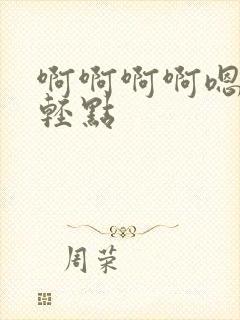 啊啊啊啊嗯
輕點
周荣